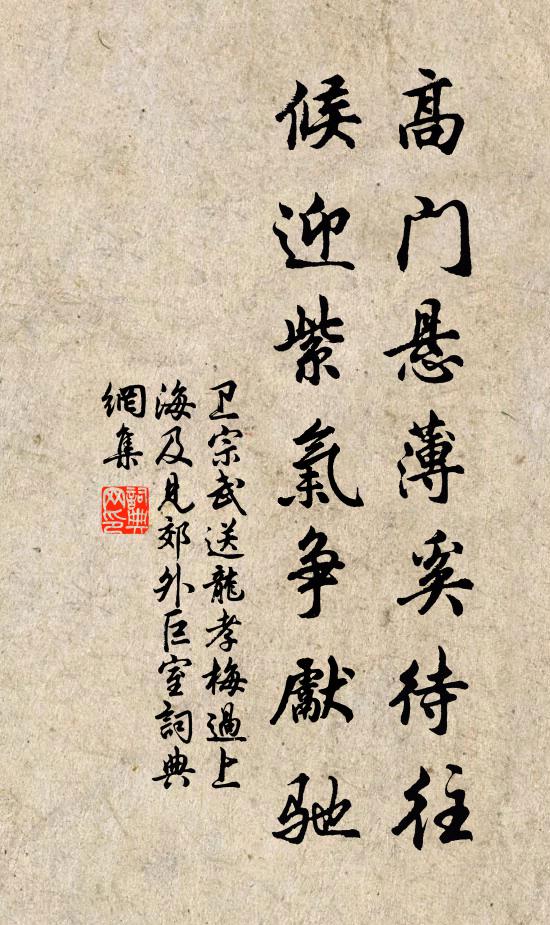 高门悬薄奚待往
候迎紫氣争獻驰
卫宗武送龍孝梅過上
海及见郊外巨室詞典
網集
詞典
网印